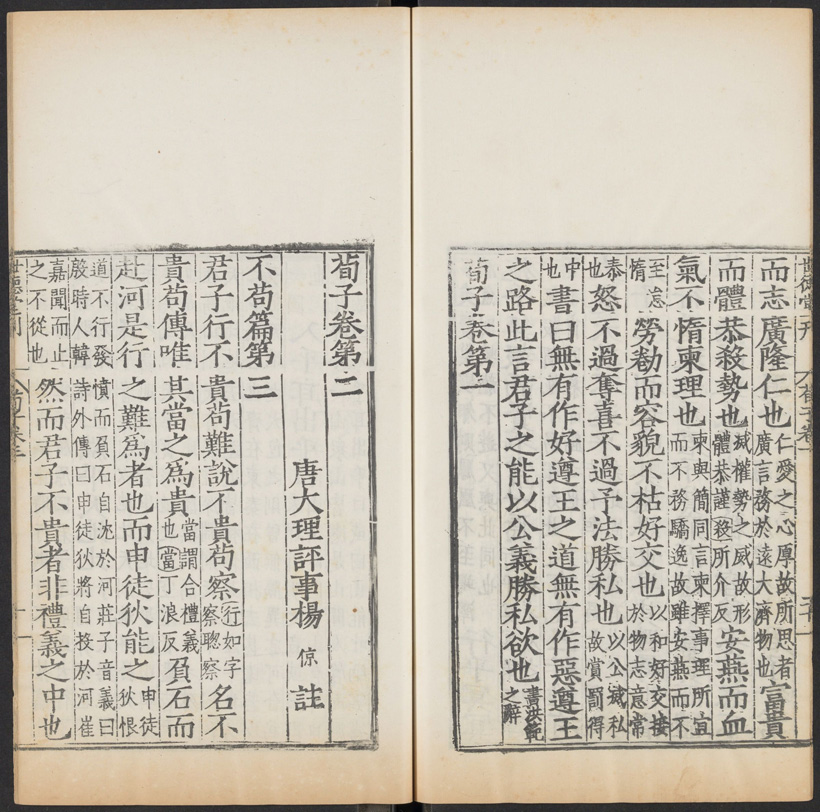 世德堂刊 荀子卷一 二十一
而志廣隆仁也仁愛之心厚故所思者廣言務於遠大濟物也富貴
而體恭殺勢也減權勢之威故形體恭謹殺所介反安燕而血
氣不惰柬理也柬與簡同言柬擇事理所宜而不務驕逸故雖安燕而不
至怠惰勞勌而容貌不枯好交也以和好交接於物志意常
恭也怒不過奪喜不過予法勝私也以公滅私故賞罰得
中也書曰無有作好遵王之道無有作惡遵王
之路此言君子之能以公義勝私欲也書洪範之辭
荀子卷第一
荀子卷第二
唐大理評事楊倞註
不苟篇第三
君子行不貴苟難說不貴苟察行如字察聰察名不
貴苟傳唯其當之為貴當謂合禮義也當丁浪反負石而
赴河是行之難為者也而申徒狄能之申徒狄恨
道不行發憤而負石自沈於河莊子音義曰殷時人韓詩外傳曰申徒狄將自投於河崔
嘉聞而止之不從也然而君子不貴者非禮義之中也
世德堂刊